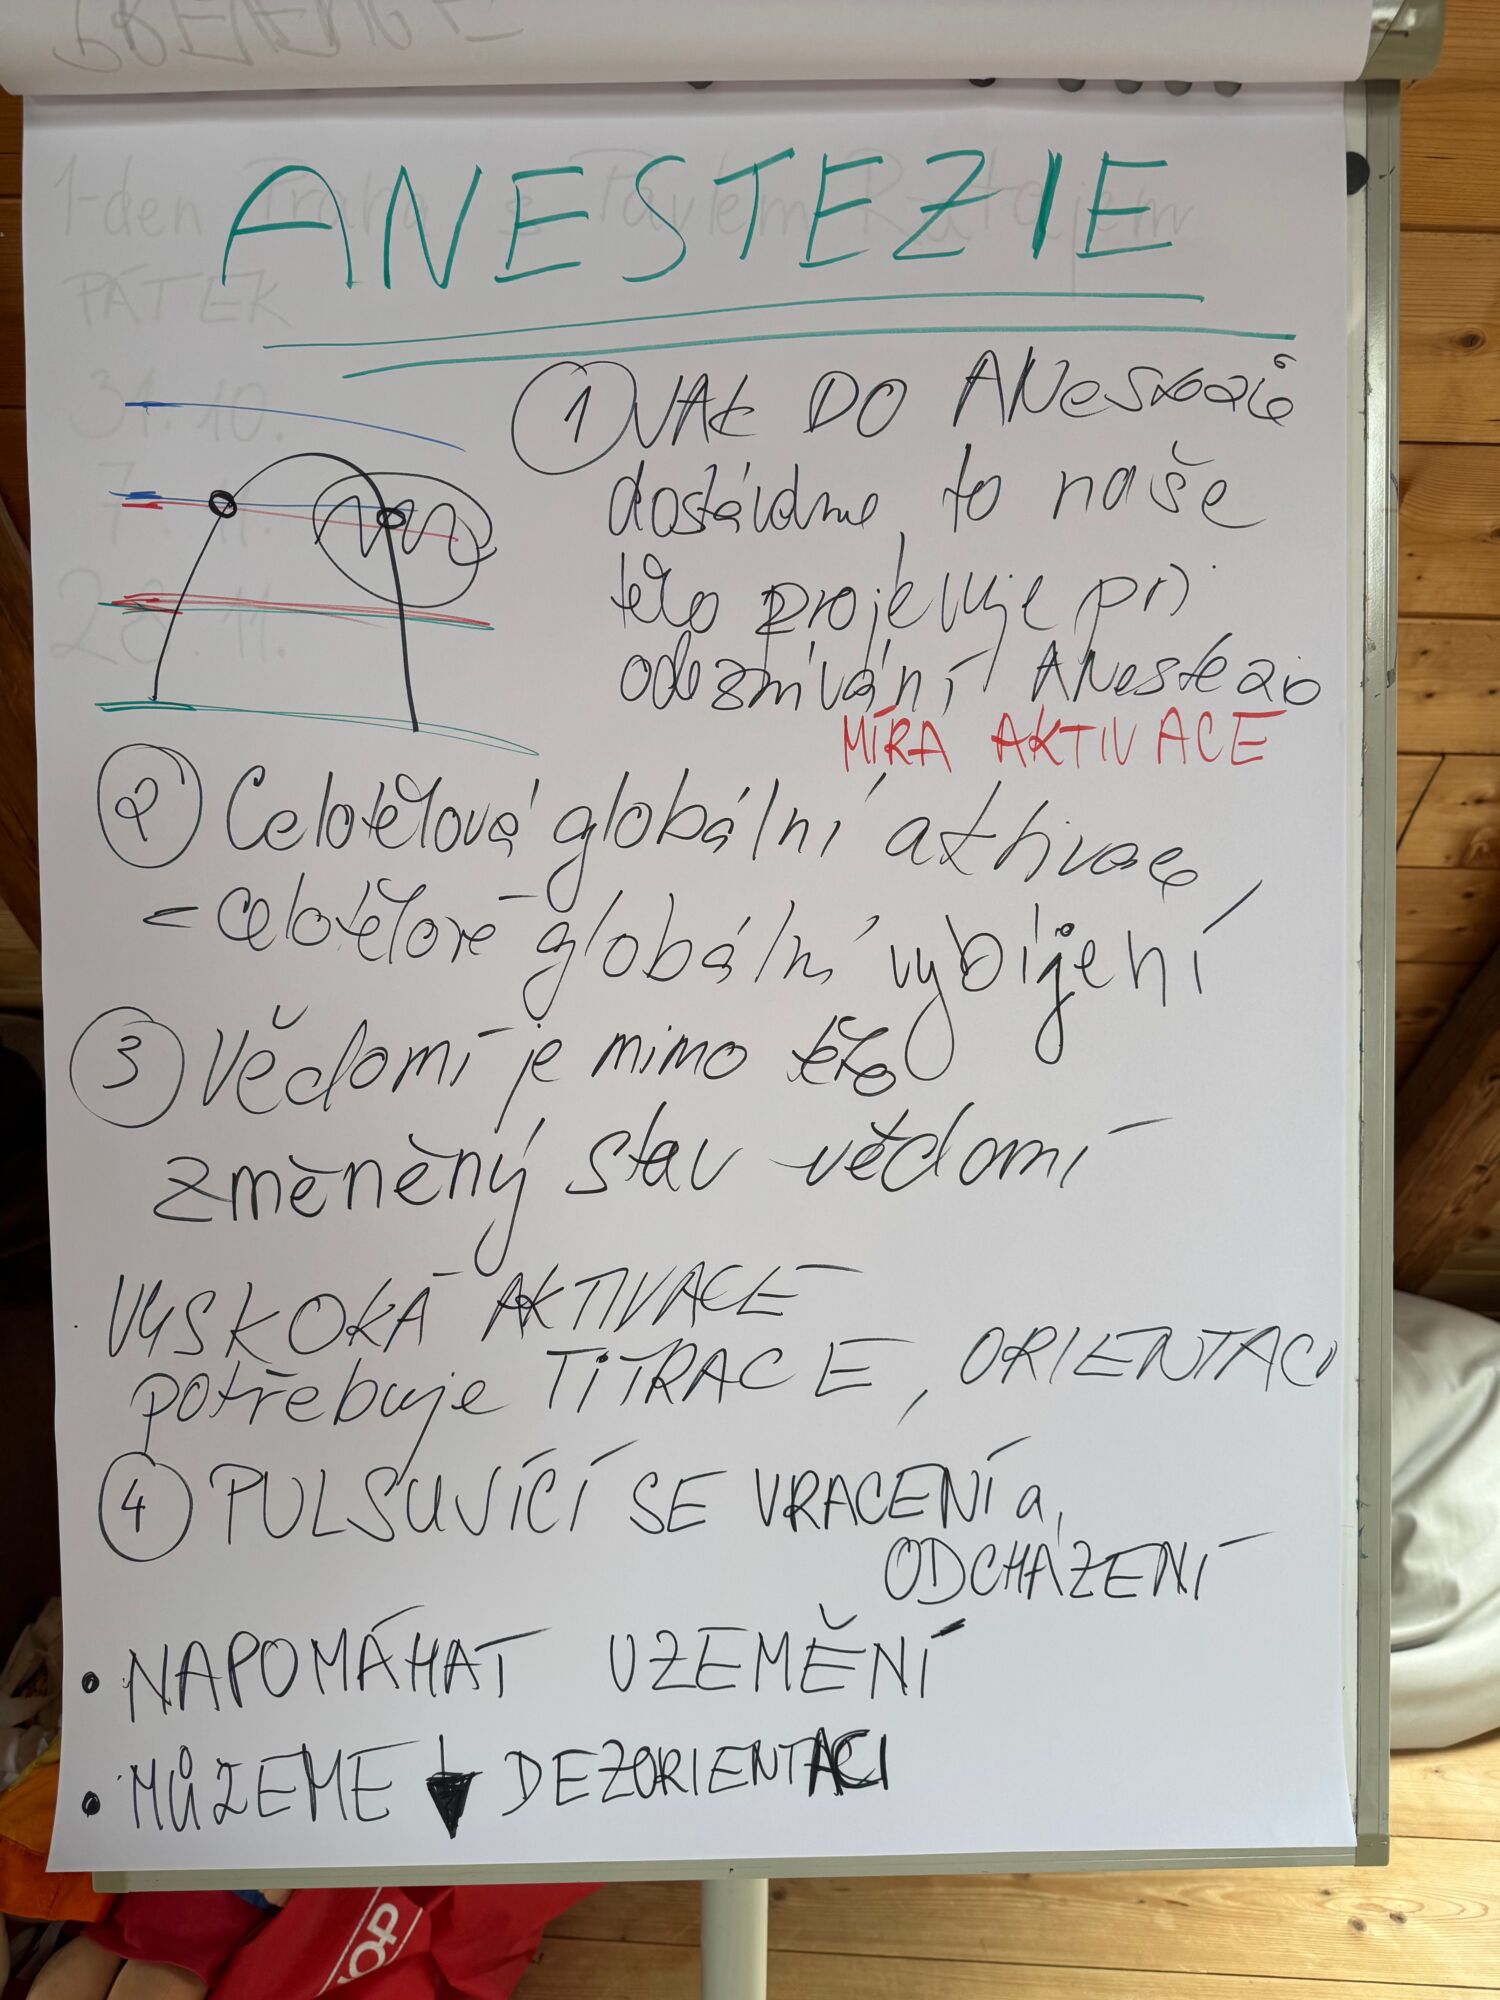 ANESTEZIE
1-den Trauma s Pavlem Ratajem
PÁTEK
31.10.
7.11.
28.11.
1 JAK DO ANestezie
dostáváme, to naše
tělo projevuje při
odeznívání ANestezie
MÍRA AKTIVACE
2 Celotělová globální aktivace,
= celotělové globální vybíjení
3 Vědomí je mimo tělo
změněný stav vědomí
VYSKOKÁ AKTIVACE
potřebuje TiTRACE, ORIENTACI
4 PULSUJÍCÍ SE VRACENÍ a
ODCHÁZENÍ
• NAPOMÁHAT UZEMĚNÍ
• MŮŽEME ↓ DEZORIENTACI